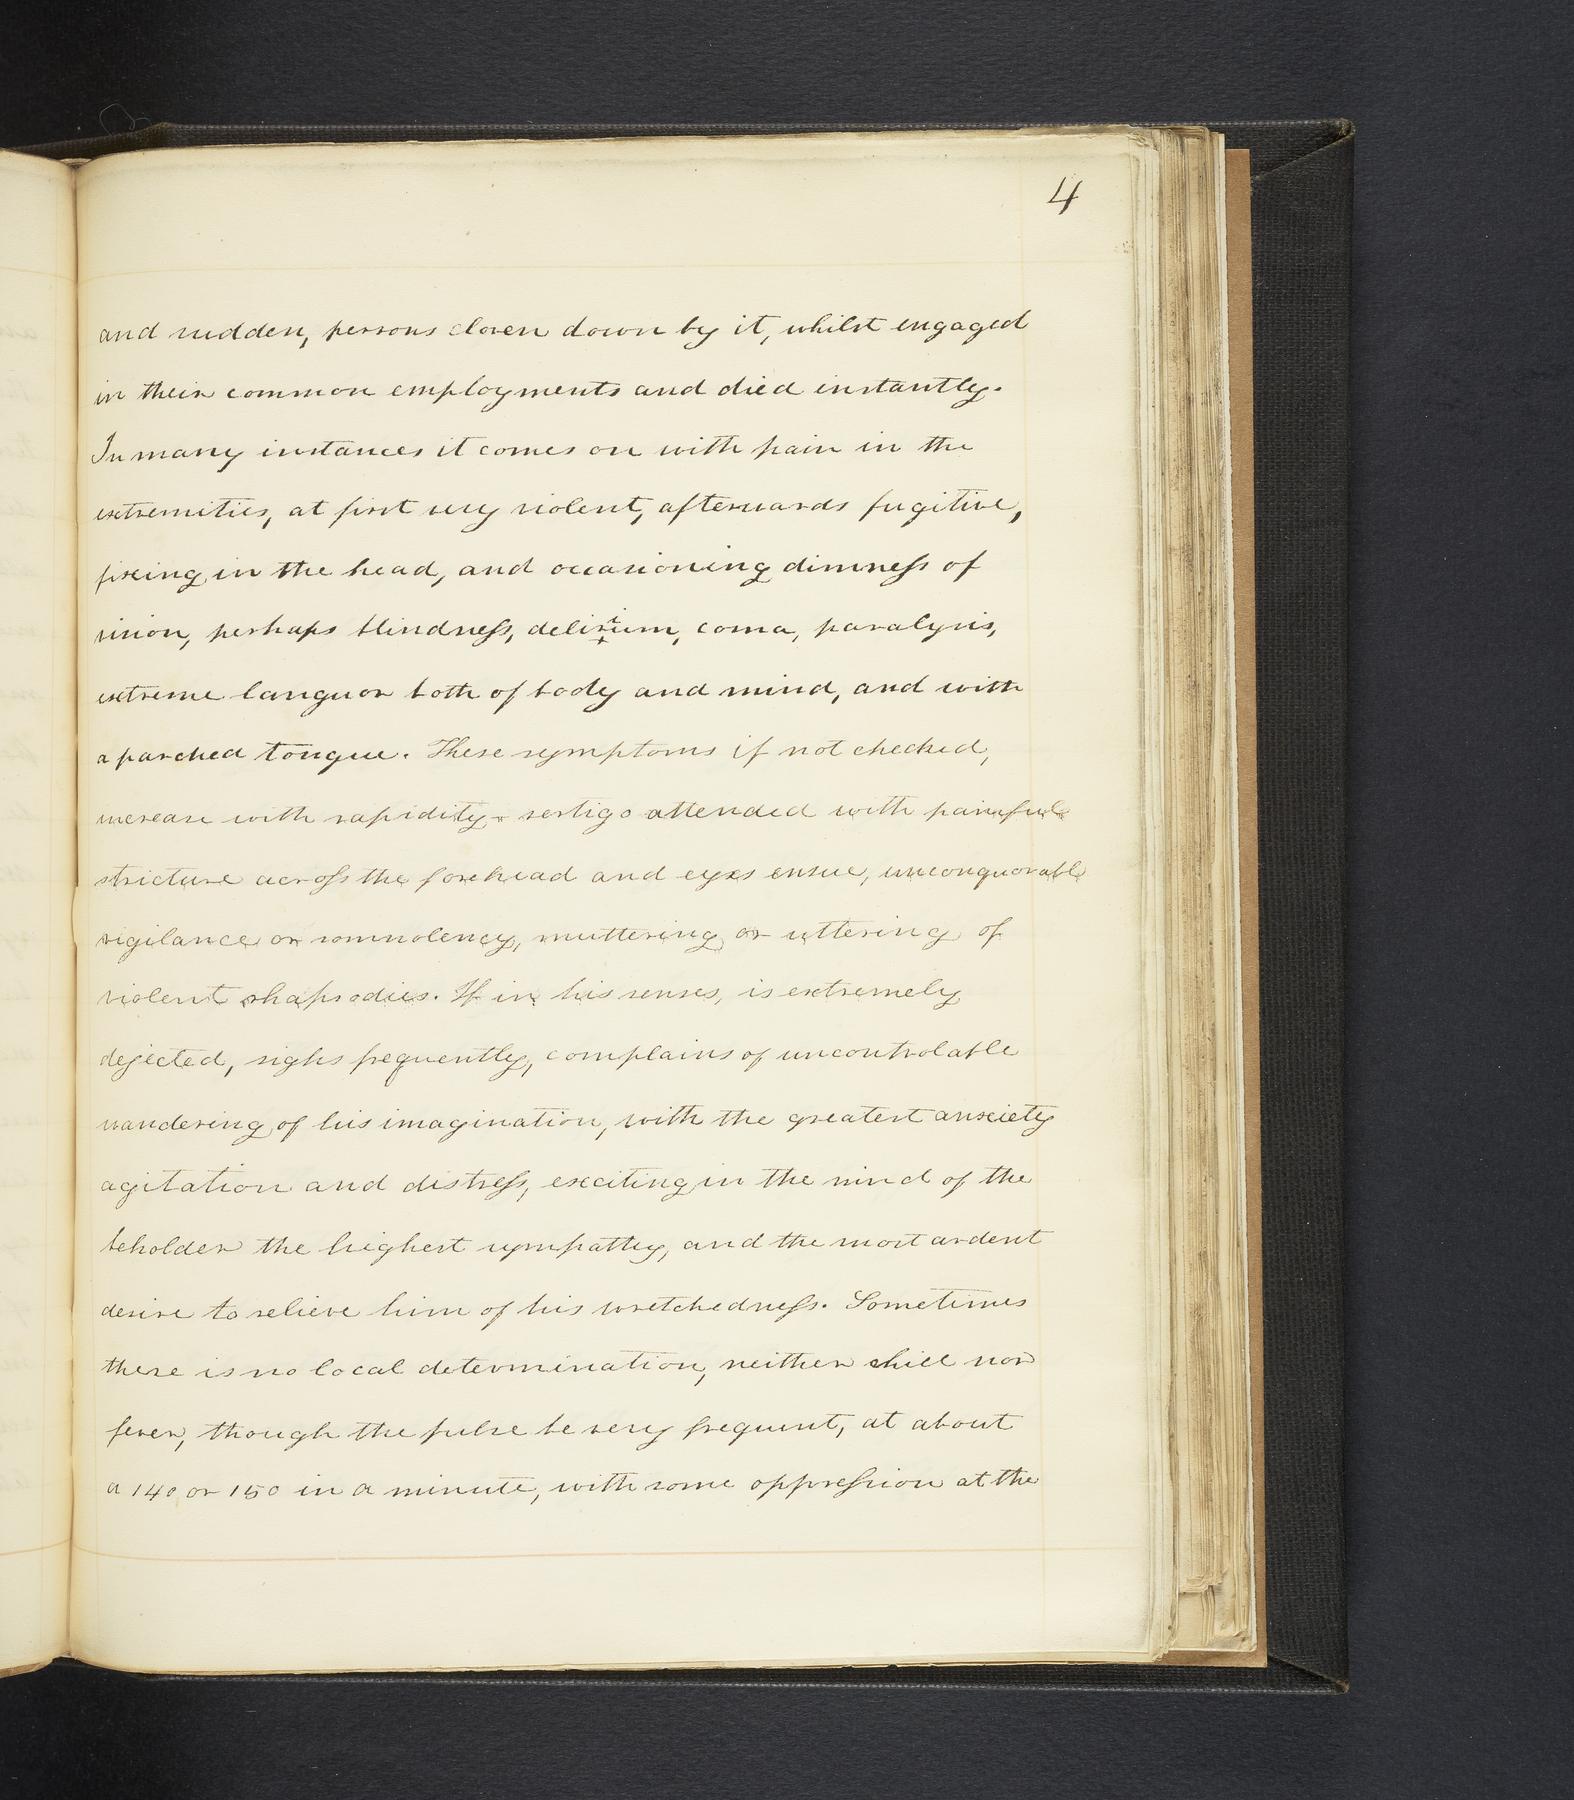 4
and sudden, persons cloven down by it, whilst engaged
in their common employments and died instantly.
In many instances it comes on with pain in the
extremities, at first very violent, afterwards fugitive,
fixing in the head, and occasioning dimness of
vision, perhaps blindness, delirium, coma, paralysis,
extreme languor both of body and mind, and with
a parched tongue. These symptoms if not checked,
increase with rapidity - vertigo attended with painful
stricture across the forehead and eyes ensue, unconquorable
vigilance or somnolency, muttering or uttering of
violent rhapsodies. If in his senses, is extremely
dejected, sighs frequently, complains of uncontrolable
wandering of his imagination, with the greatest anxiety
agitation and distress, exciting in the mind of the
beholder the highest sympathy, and the most ardent
desire to relieve him of his wretchedness. Sometimes
there is no local determination, neither chill nor
fever, though the pulse be very frequent, at about
a 140 or 150 in a minute, with some oppression at the